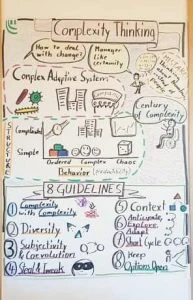 Complexity Thinking
How to deal
with change?
Manager like
certainty
Complex Adaptive System
Century of
Complexity
STRUCTURE
Complicated
Simple
Ordered Complex Chaos
Behavior
8 GUIDELINES
1 Complexity
with Complexity
2 Diversity
3 Subjectivity
& Coevolution
4 Steal & tweak
5 Context
6 Anticipate,
Explore
Adapt
7 Short Cycle
8 Keep
Options Open